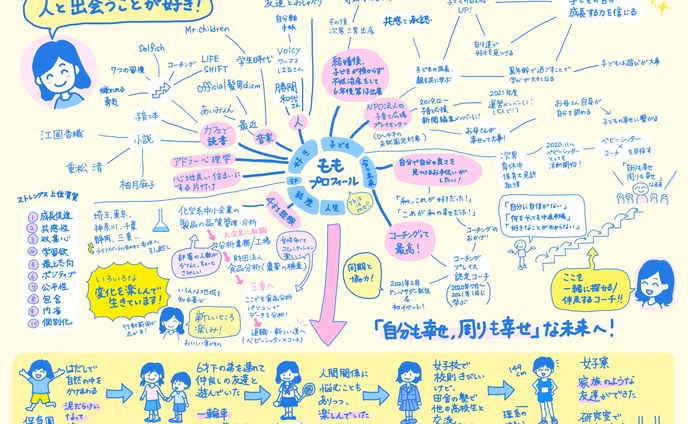 人と出会うことが好き!
友達とおしゃべり
自分軸
手帳
Mr children
Selfish
7つの習慣
コーチング
LIFE
SHIFT
学生時代
VOICY
ワーママ
はるさん
嫌われる
勇気
Official髭男dism
勝間
和代
さん
子育て本
あいみょん
人
江國香織
小説
カフェで
読書
最近
音楽
重松清
アドラー心理学
柚月麻子
心地良い住まいに
する片付け
好き
子ども
もも
プロフィール
経歴
人生
結婚後、
子どもが授からず
不妊治療をして
6年後第1子出産
その後
次男三男出産
共感と承認
UP!
子どもの成長、
親も共に学ぶ
自分達で
好きを見つける
成長する力を信じる
異年齢で過ごすことで
学びが大きくなる
子どもは遊びが大事
NPO法人の
子育て広場
プレイセンター
2019.12〜
子育て応援
新聞編集メンバーに!
2021年度
運営メンバーに!
お母さんが
幸せって大事!
お母さん自身が
自分を認める
子どもの幸せに繋がる
次男
育休中
保育士免許
取得
2020.11〜
ベビーシッター
としても
活動開始!
ベビーシッター
×
コーチ
を目指す
自分で自分の良さを
見つけるお手伝いが
したい!
「私、これが好きだった!」
「これが私の幸せだった!」
コーチングって
最高!
コーチングの
おかげ
コーチング
プレイス
認定コーチ
2020年7月〜
2021年1月に
学ぶ
2021年2月
アンバサダー就任
&
初イベント!
「自分も幸せ
周りも幸せ」
な未来
「自分に自信がない」
「何をやっても中途半端」
「好きなことがわからない」
ここを
一緒に探せる/
伴走するコーチ!!
ストレングス上位資質
1 成長促進
2 共感性
3 収集心
4 学習欲
5 最上志向
6 ポジティブ
7 公平性
8 包含
9 内省
10 個別化
埼玉、東京、
神奈川、千葉
静岡、三重…
いろいろな
変化を楽しんで
生きています!
化学系中小企業の
製品の品質管理・分析
4社経験
分析業務/工場
財団法人
食品分析(農薬の検査)
三重へ
ここでも食品分析
パソコンで
データを分析!
退職・新しい道へ
(ベビーシッター×コーチ)
いろんな地域を
知る喜び
新しいところ
楽しみ!!
おいしい食べもの
同期と
協力!
「自分も幸せ、周りも幸せ」な未来へ!
はだしで
自然の中を
かけまわる
泥だらけに
なって
保育園
6才下の弟を連れて
仲良しの友達と
遊んでいた
一輪車
人間関係に
悩むことも
ありつつ、
楽しんでいた
女子校で
校則きびしい
けど、
田舎の塾で
他の高校生と
交流
149
cm
理系の
女子寮
家族のような
友達ができた
研究室で